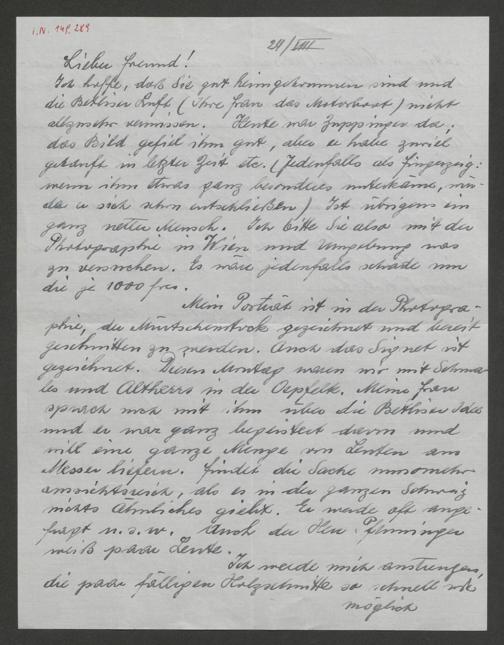 I.N. 149.289
24/VIII
Lieber Freund!
Ich hoffe, daß Sie gut heimgekommen sind und
die Betliser Luft (Ihre Frau das Motorboot) nicht
allzusehr vermissen. Heute war Zuppinger da,
das Bild gefiel ihm gut, aber er habe zuviel
gekauft in letzter Zeit etc. (Jedenfalls als Fingerzeig:
wenn ihm etwas ganz besonderes unterkäme, wür-
de er sich schon entschließen) Ist übrigens ein
ganz netter Mensch. Ich bitte Sie also mit der
Photographie in Wien und Umgebung was
zu versuchen. Es wäre jedenfalls schade um
die je 1000 frcs.
Mein Porträt ist in der Photogra-
phie, der Mürtschenstock gezeichnet und bereit
geschnitten zu werden. Auch das Signet ist
gezeichnet. Diesen Montag waren wir mit
les und Altherrs in der Oepfelk. Meine Frau
sprach noch mit ihm über die Betliser Idee
und er war ganz begeistert davon und
will eine ganze Menge von Leuten ans
Messer liefern. Findet die Sache umsomehr
aussichtsreich, als es in der ganzen Schweiz
nichts Ähnliches giebt. Er werde oft ange-
fragt u.s.w. Auch der Herr
weiß paar Leute.
Ich werde mich anstrengen,
die paar fälligen Holzschnitte so schnell wie
möglich